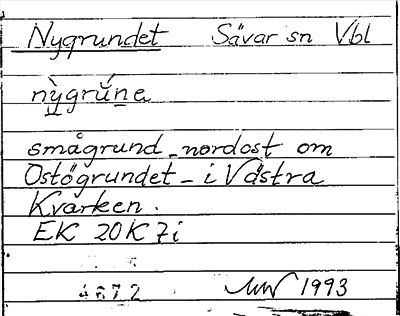 Nygrundet Sävar sn Vbl
nỳgrŭ́ne
smågrund nordost om
Ostögrundet - i Västra
Kvarken.
EK 20K7i
4672 1993